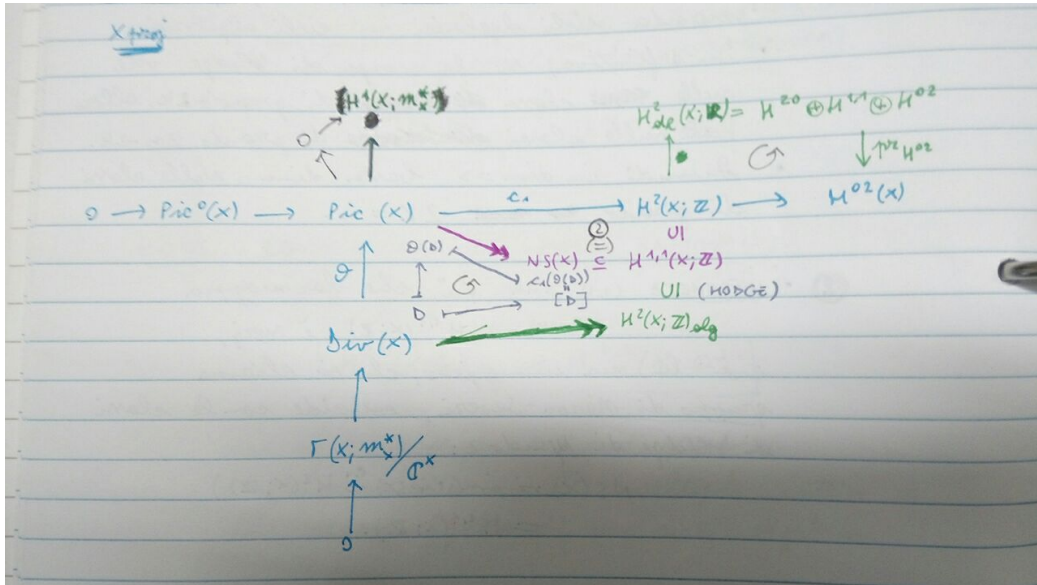 X proj
H¹(X; m*ₓ)
H²dR(X; ℝ) = H²⁰ ⊕ H¹,¹ ⊕ H⁰²
0
↓ pr H⁰²
0 → Pic⁰(X) → Pic (X) → c₁ H²(X; ℤ) → H⁰²(X)
UI
②
(=)
O(D) NS(X) ⊆ H¹,¹(X; ℤ)
O c₁(O(D))
[D] UI (HODGE)
D
Div(X) H²(X; ℤ)alg
Γ(X; m*ₓ)/ℂˣ
0